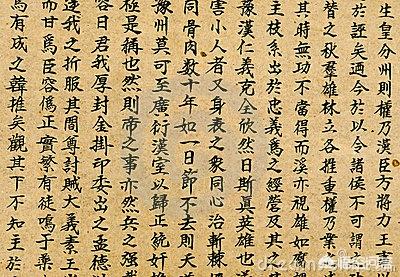 生皇分州則權乃漢臣方將力王
於誼矣迺今於以今諸侯不可謂
昔之秋羣雄林立各推重權乃業
其時無功不當得而溪亦視雄如腐
主枝系出於忠義爲之經營及其
豫漢仁義克全欣然日斯真英雄也
害小人者又身表之衆同心治斬棘
同骨肉數十年如一日節不去則天
豫州莫可至廣衍漢室以歸正統奸
極是稱也然則帝之事亦然兵之强
容日君我厚封金掛印委出之孟德
逆我之折服其間尊討賊大義素王
而甘爲臣容僞正實繁有徒鳴于藥
爲有成之韓推矣觀其下不知主於